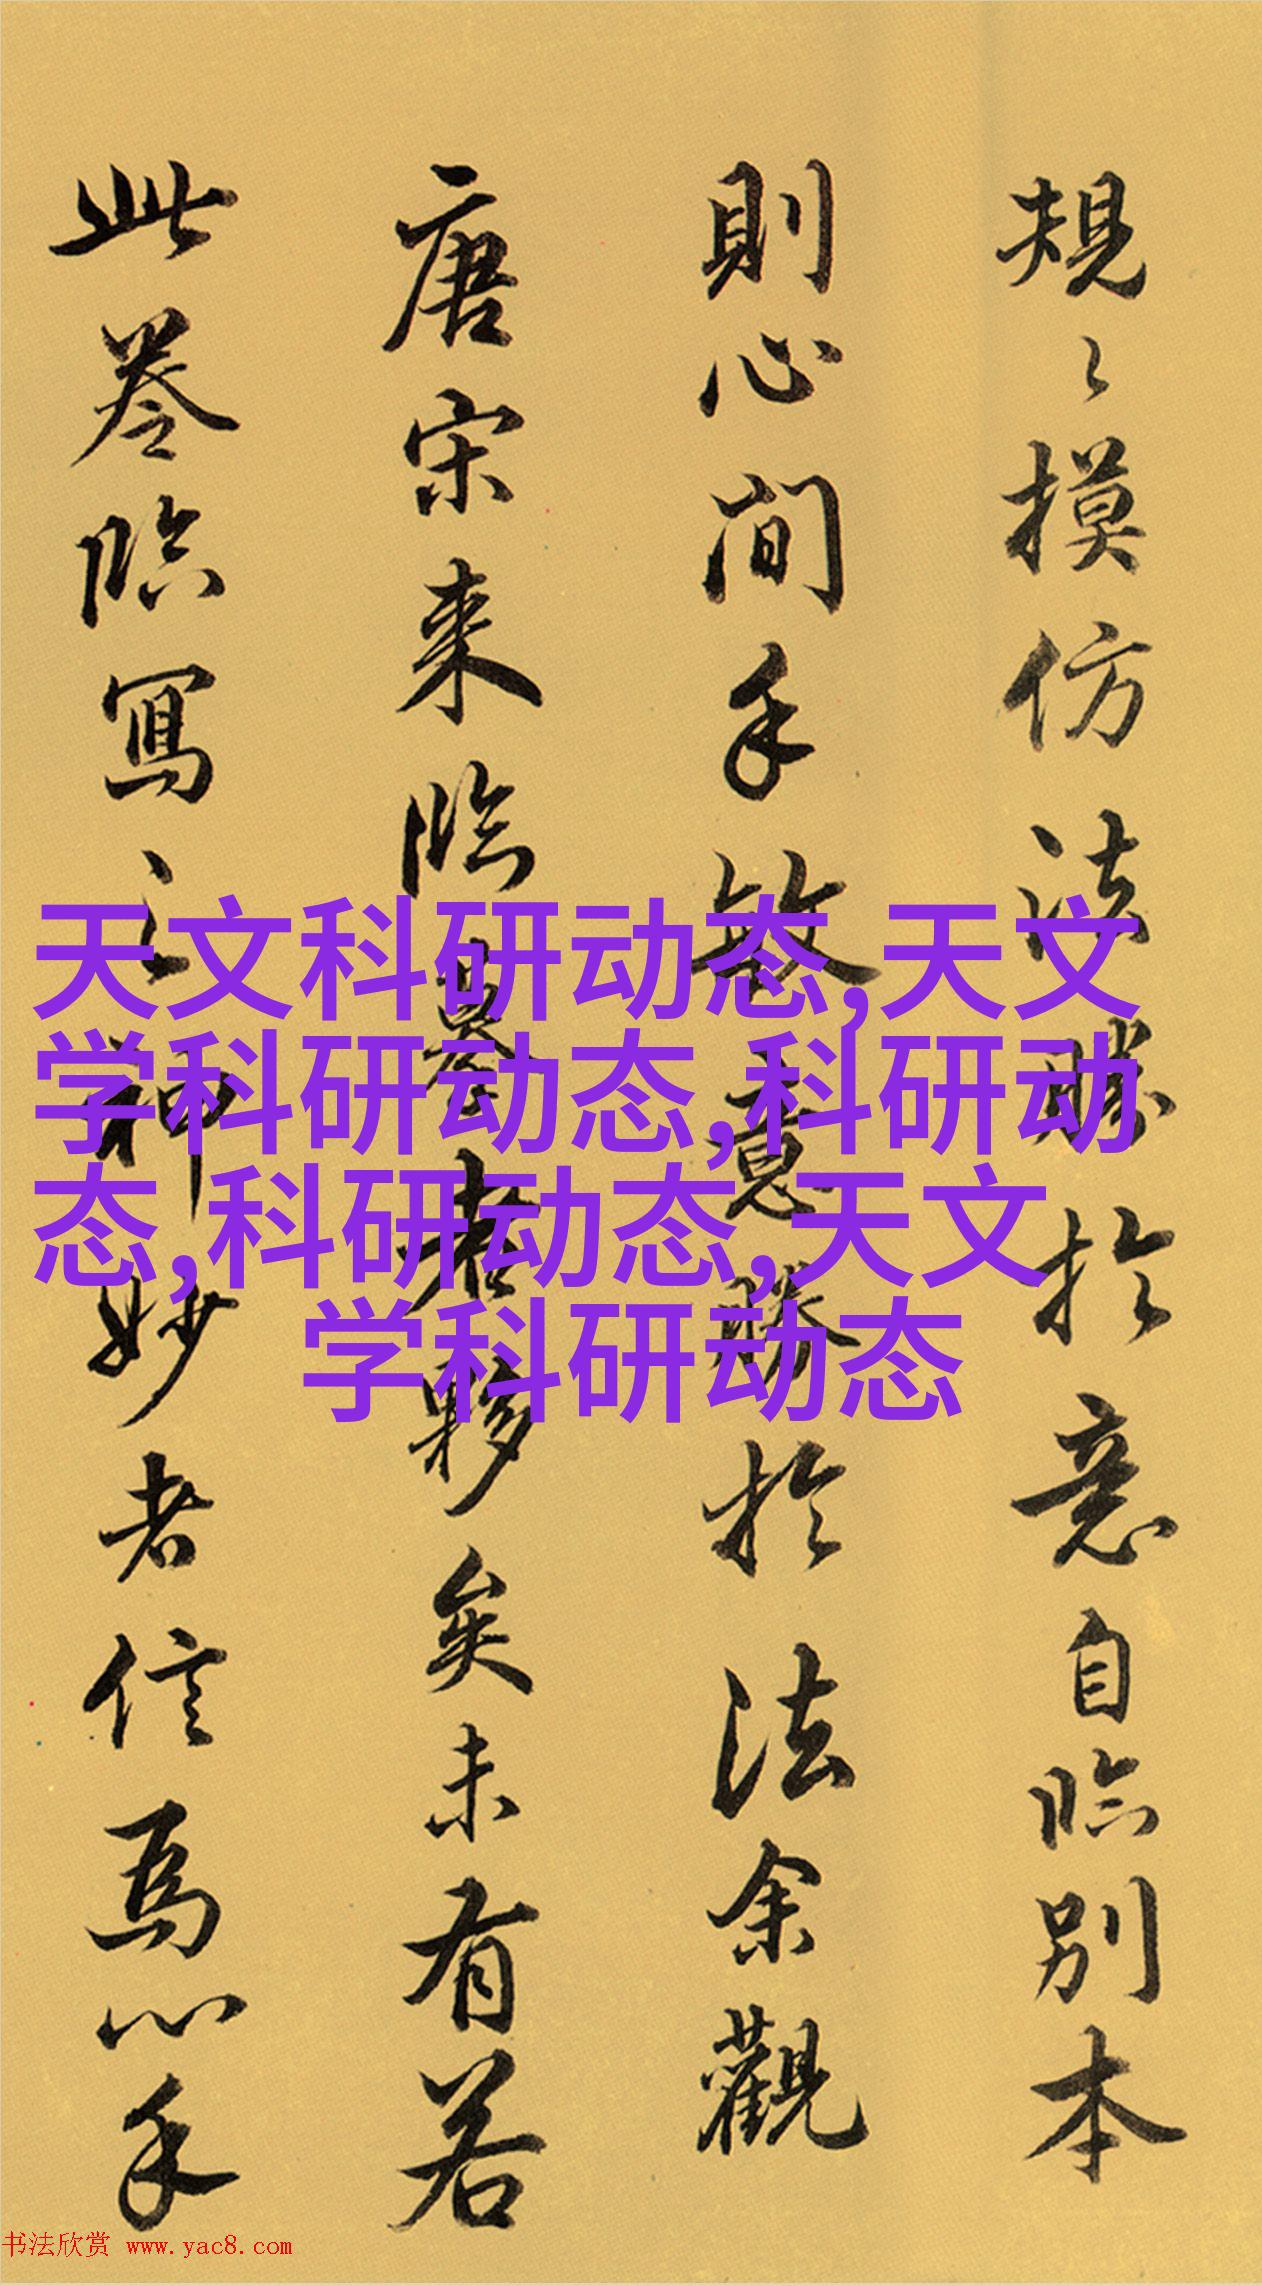 規〻摸仿法勝於意自臨別本
則心閒手敏意勝於法余觀
唐宋来臨摹者夥矣未有若
此卷臨寫之神妙者信為心手
天文科研动态,天文
学科研动态,科研动
态,科研动态,天文
学科研动态
书法欣赏 www.yac8.com